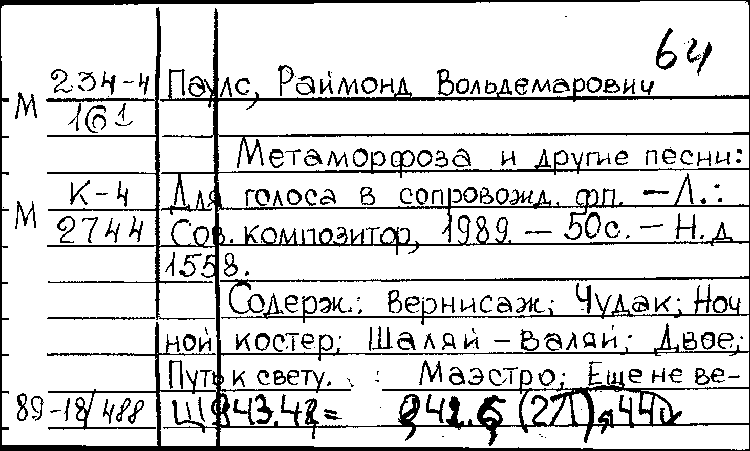 64
М 234-4 Паулс, Раймонд Вольдемарович
161
Метаморфоза и другие песни:
М К-4 Для голоса в сопровожд. фп. — Л.:
2744 Сов. композитор, 1989. — 50с. — Н.д
1558.
Содерж.: Вернисаж; Чудак; Ноч
ной костер; Шаляй-валяй; Двое;
Путь к свету. Маэстро; Еще не ве-
89-18/488 Ц 843.42=